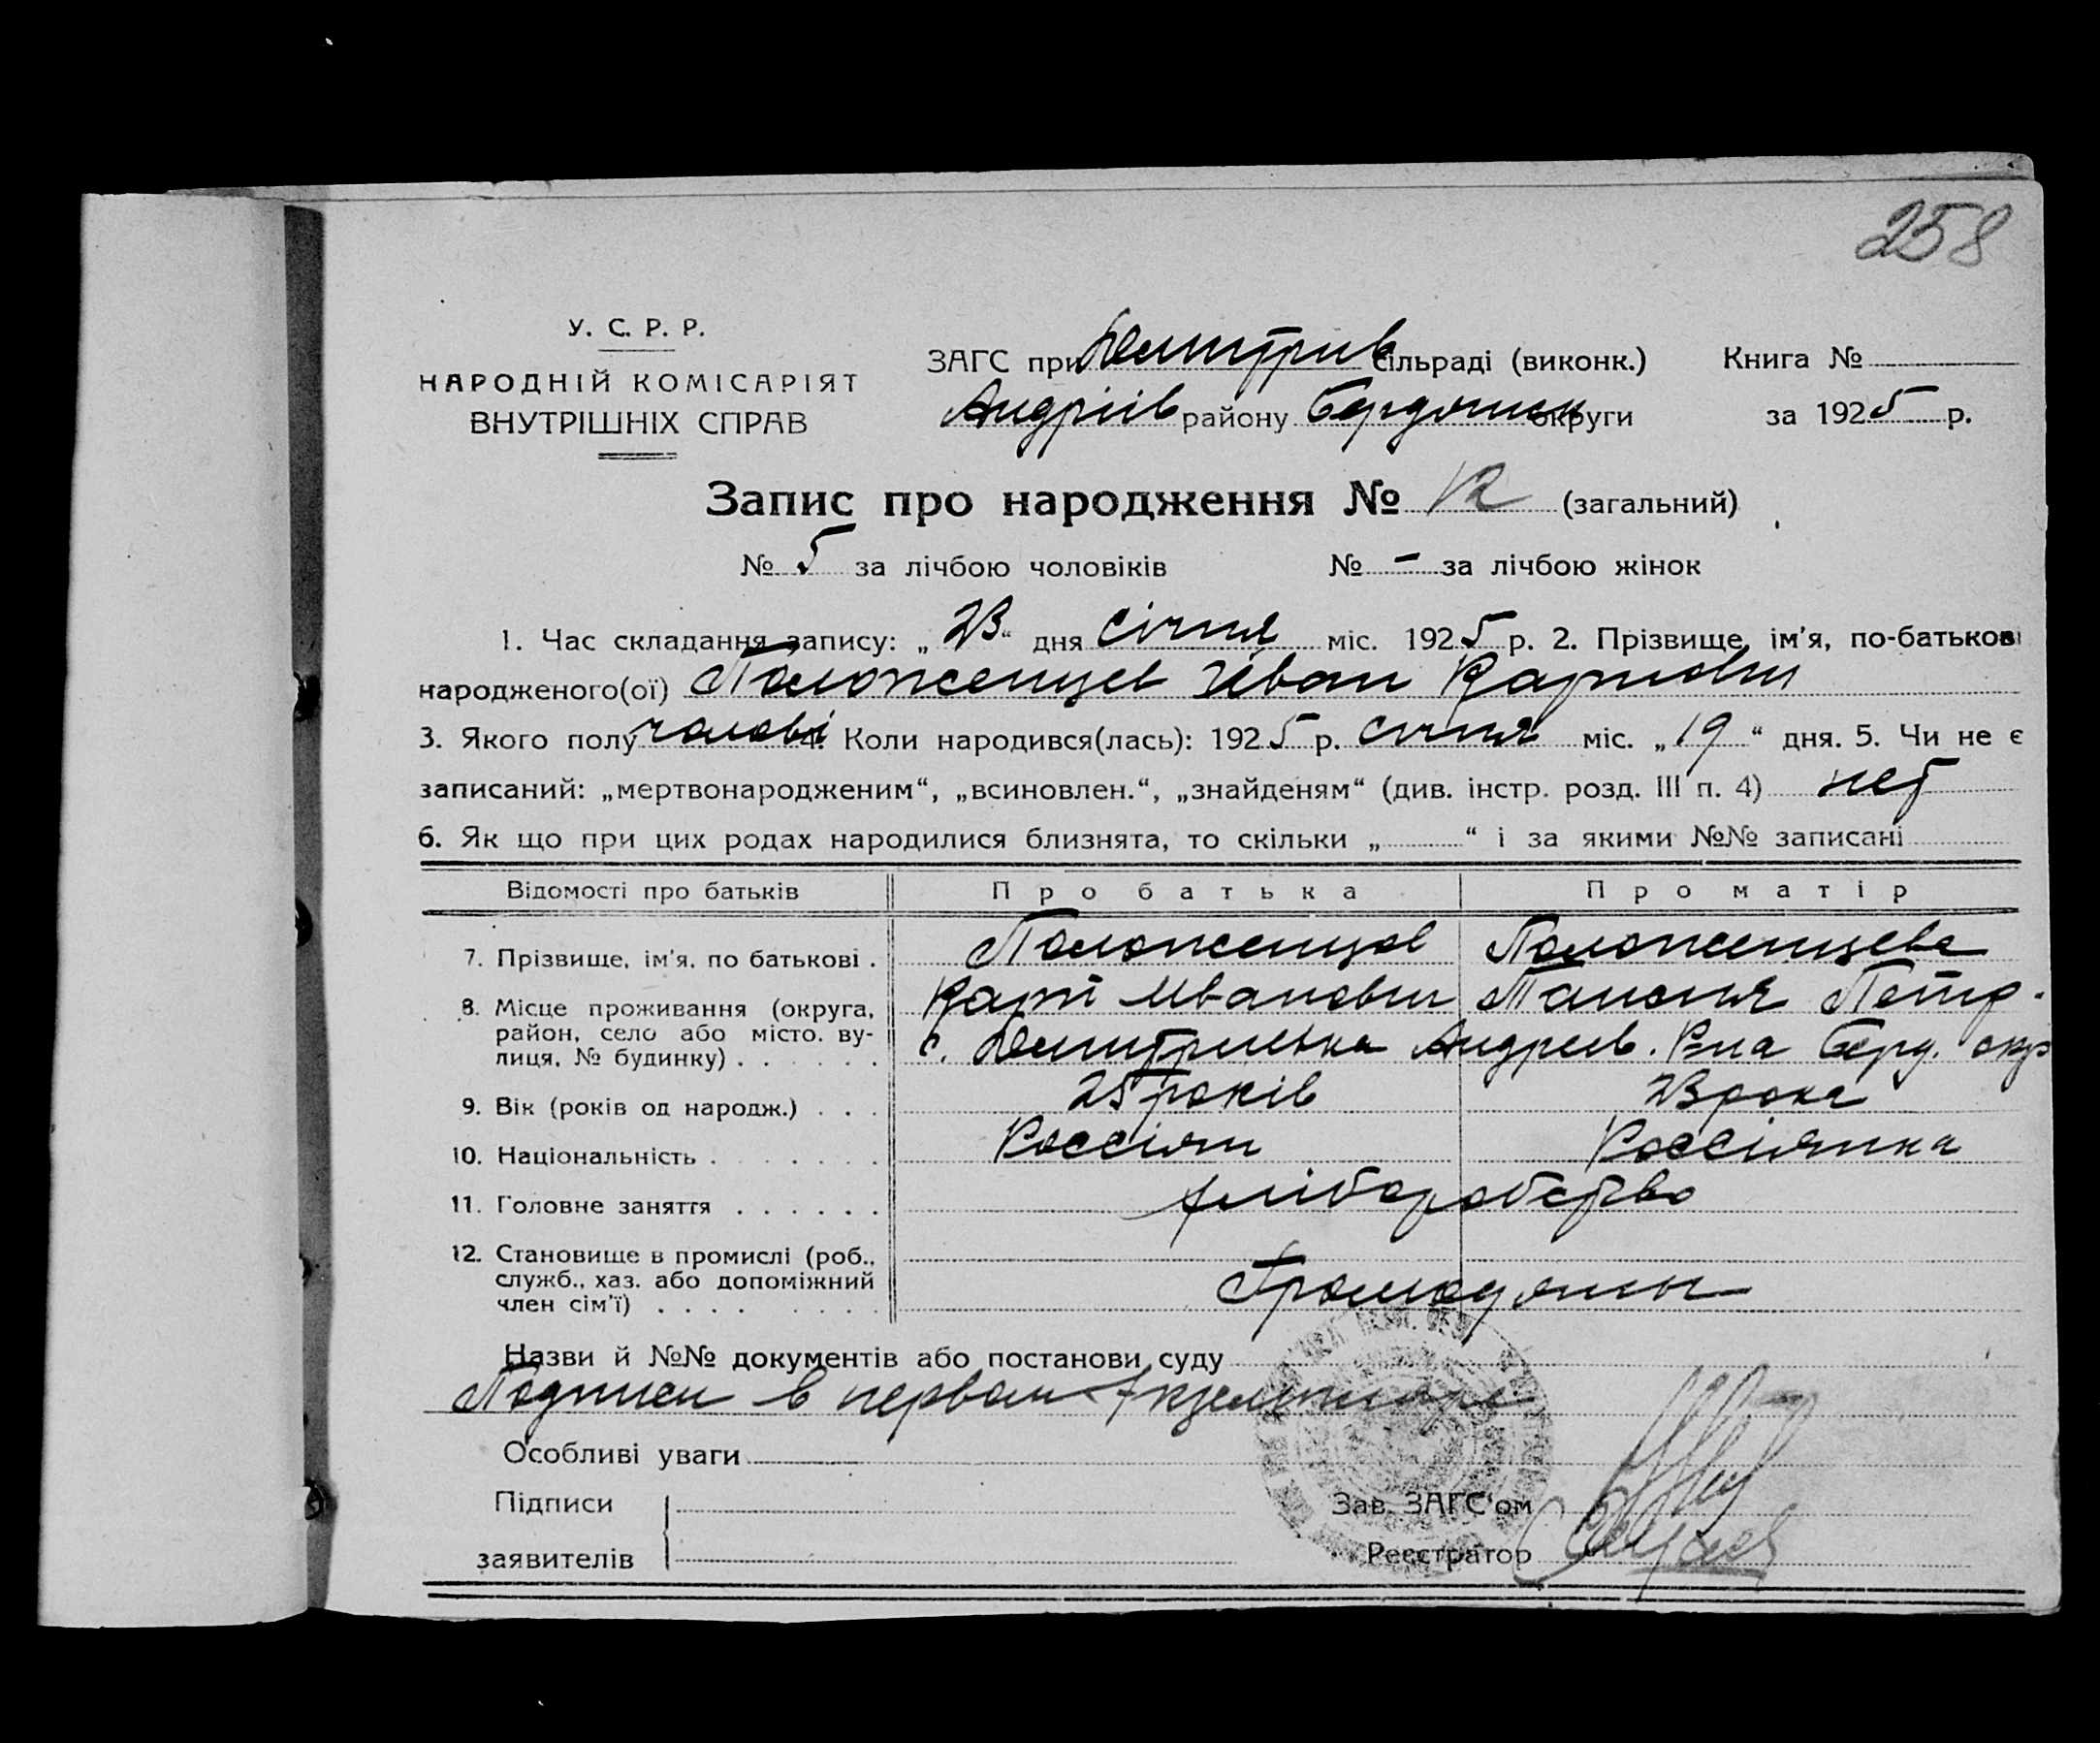 258
У. С. Р. Р.
НАРОДНІЙ КОМІСАРІЯТ
ВНУТРІШНІХ СПРАВ
ЗАГС при Дмитрив сільраді (виконк.) Книга №
Андріїв району Бердянськ округи за 1925 р.
Запис про народження № 12 (загальний)
№ 5 за лічбою чоловіків № - за лічбою жінок
1. Час складання запису: „23“ дня січня міс. 1925 р. 2. Прізвище, ім'я, по-батькові
народженого(ої) Положенцев Іван Карпович
3. Якого полу чолові 4. Коли народився(лась): 1925 р. січня міс. „19“ дня. 5. Чи не є
записаний: „мертвонародженим“, „всиновлен.“, „знайденям“ (див. інстр. розд. III п. 4) нет
6. Як що при цих родах народилися близнята, то скільки „ “ і за якими №№ записані
Відомості про батьків Про батька Про матір
7. Прізвище, ім'я, по батькові . Положенцов Положенцева
Карп Иванович Таисия Петр.
8. Місце проживання (округа, район, село або місто, ву-
лиця, № будинку) . . . . . . с. Дмитрівка Андреев. Р-на Берд. окр
9. Вік (років од народж.) . . . 25 років 23 рока
10. Національність . . . . . . . Россіян Россіянка
11. Головне заняття . . . . . . хліборобство
12. Становище в промислі (роб.,
служб., хаз. або допоміжний
член сім'ї) . . . . . . . . Громадяны
Назви й №№ документів або постанови суду
Подписи в первом экземпляре
Особливі уваги
Підписи
заявителів
Зав. ЗАГС'ом
Реєстратор